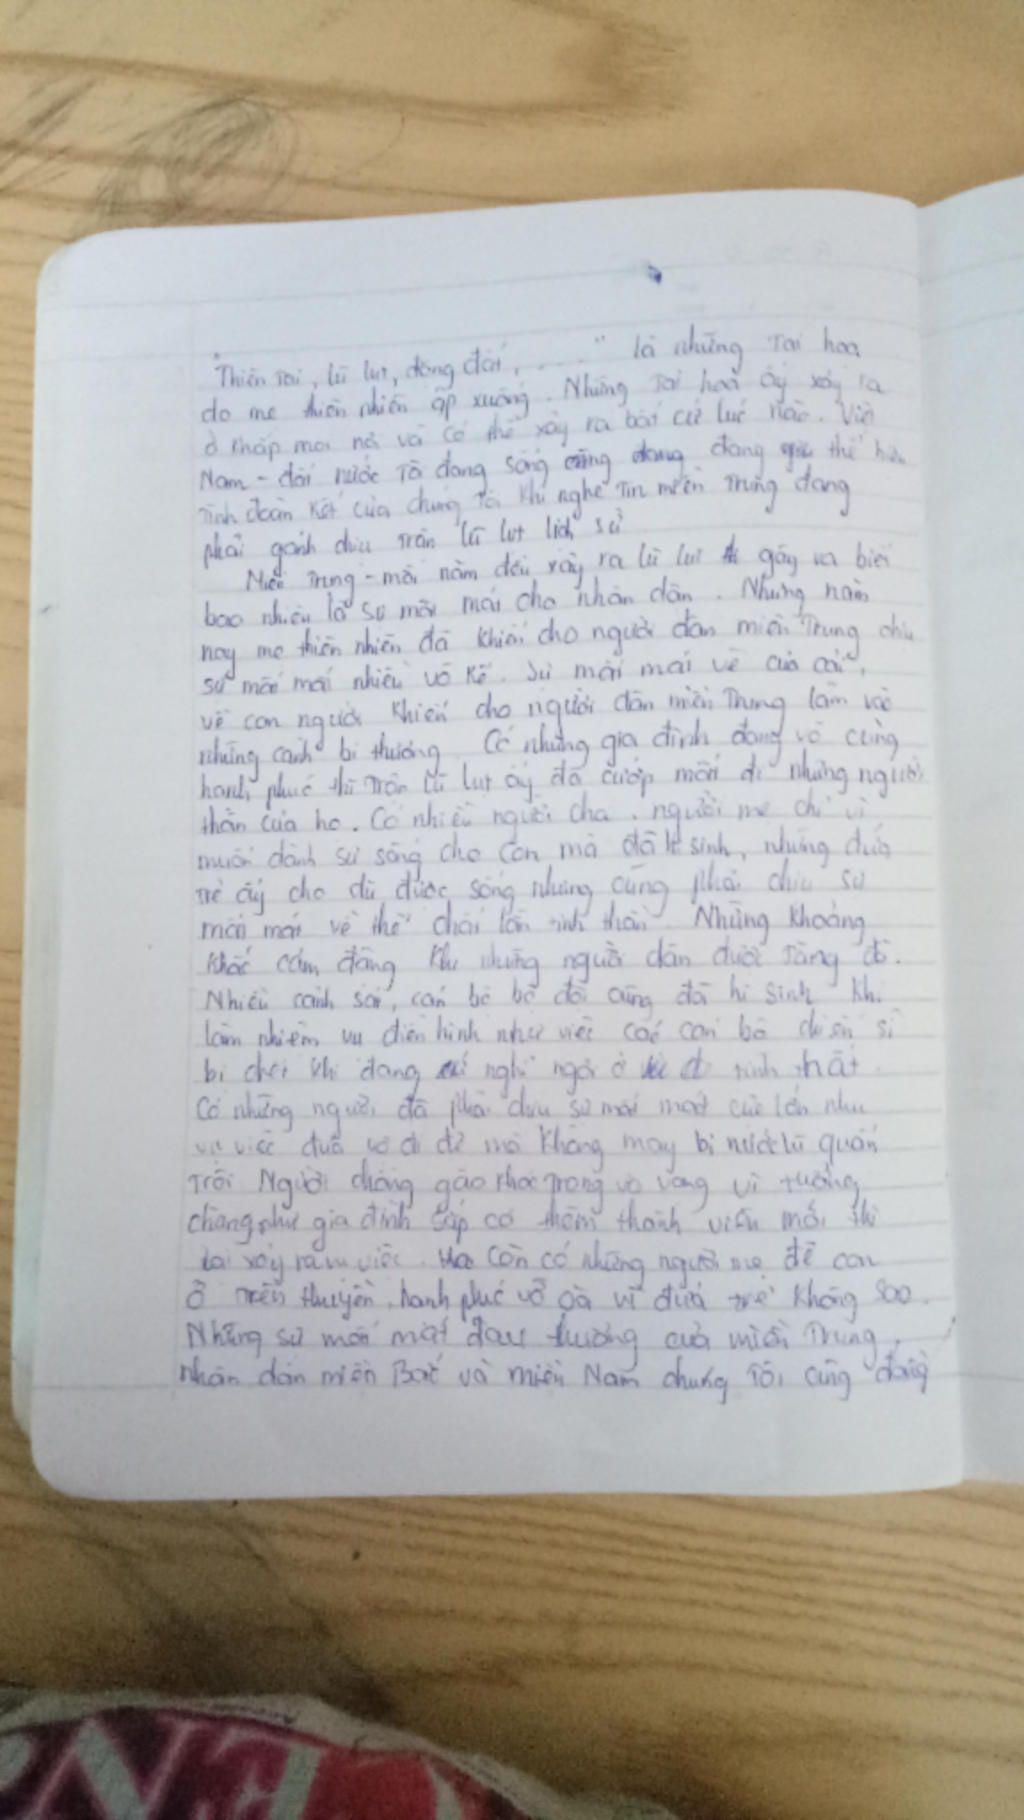 "Thiên tai, lũ lụt, động đất, ....." là những tai hoạ
do mẹ thiên nhiên ập xuống. Những tai hoạ ấy xảy ra
ở khắp mọi nơi và có thể xảy ra bất cứ lúc nào. Việt
Nam - đất nước tôi đang sống cũng đang thể hiện
tình đoàn kết của chúng tôi khi nghe tin miền Trung đang
phải gánh chịu trận lũ lụt lịch sử
Miền Trung - mỗi năm đều xảy ra lũ lụt gây ra biết
bao nhiêu là sự mất mát cho nhân dân. Nhưng năm
nay mẹ thiên nhiên đã khiến cho người dân miền Trung chịu
sự mất mát nhiều vô kể. Sự mất mát về của cải,
về con người khiến cho người dân miền Trung lâm vào
những cảnh bi thương. Có những gia đình đang vô cùng
hạnh phúc thì trận lũ lụt ấy đã cướp mất đi những người
thân của họ. Có nhiều người cha, người mẹ chỉ vì
muốn dành sự sống cho con mà đã hi sinh, những đứa
trẻ ấy cho dù được sống nhưng cũng phải chịu sự
mất mát về thể chất lẫn tinh thần. Những khoảng
khắc cảm động khi những người dân được tặng đồ.
Nhiều cảnh sát, cán bộ bộ đội cũng đã hi sinh khi
làm nhiệm vụ điển hình như việc các cán bộ chiến sĩ
bị chết khi đang nghỉ ngơi ở
Có những người đã phải chịu sự mất mát cực lớn như
vụ việc đưa vợ đi đẻ mà không may bị nước lũ quấn
trôi Người chồng gào khóc trong vô vọng vì tưởng
chừng như gia đình sắp có thêm thành viên mới thì
lại xảy ra vụ việc. Còn có những người mẹ đẻ con
ở trên thuyền, hạnh phúc vỡ oà vì đứa trẻ không sao.
Những sự mất mát đau thương của miền Trung,
nhân dân miền Bắc và miền Nam chúng tôi cũng đồng